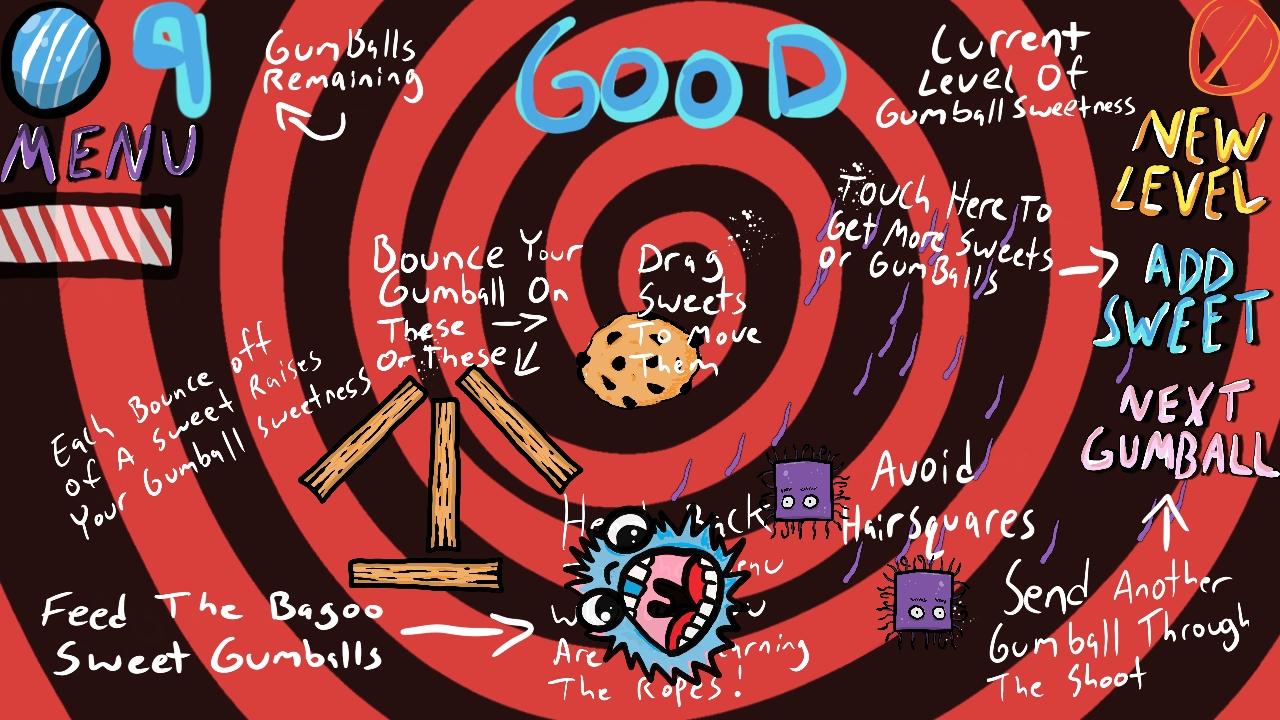 9
GumBalls
Remaining
GOOD
Current
Level Of
Gumball Sweetness
MENU
NEW
LEVEL
Touch Here To
Get More Sweets
Or GumBalls
ADD
SWEET
Bounce Your
Gumball On
These
Or These
Drag
Sweets
To Move
Them
Each Bounce off
of A Sweet Raises
Your Gumball Sweetness
NEXT
GUMBALL
Avoid
HairSquares
Feed The Bagoo
Sweet Gumballs
Are
The Ropes!
Send Another
Gumball Through
The Shoot